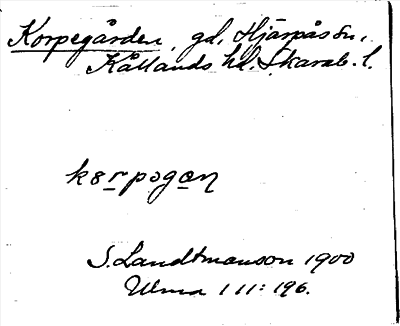 Korpegården, gd, Hjärpås sn,
Kållands hd. Skarab. l.
kɵrpəgan
S. Landtmanson 1900
Ulma 111: 196.